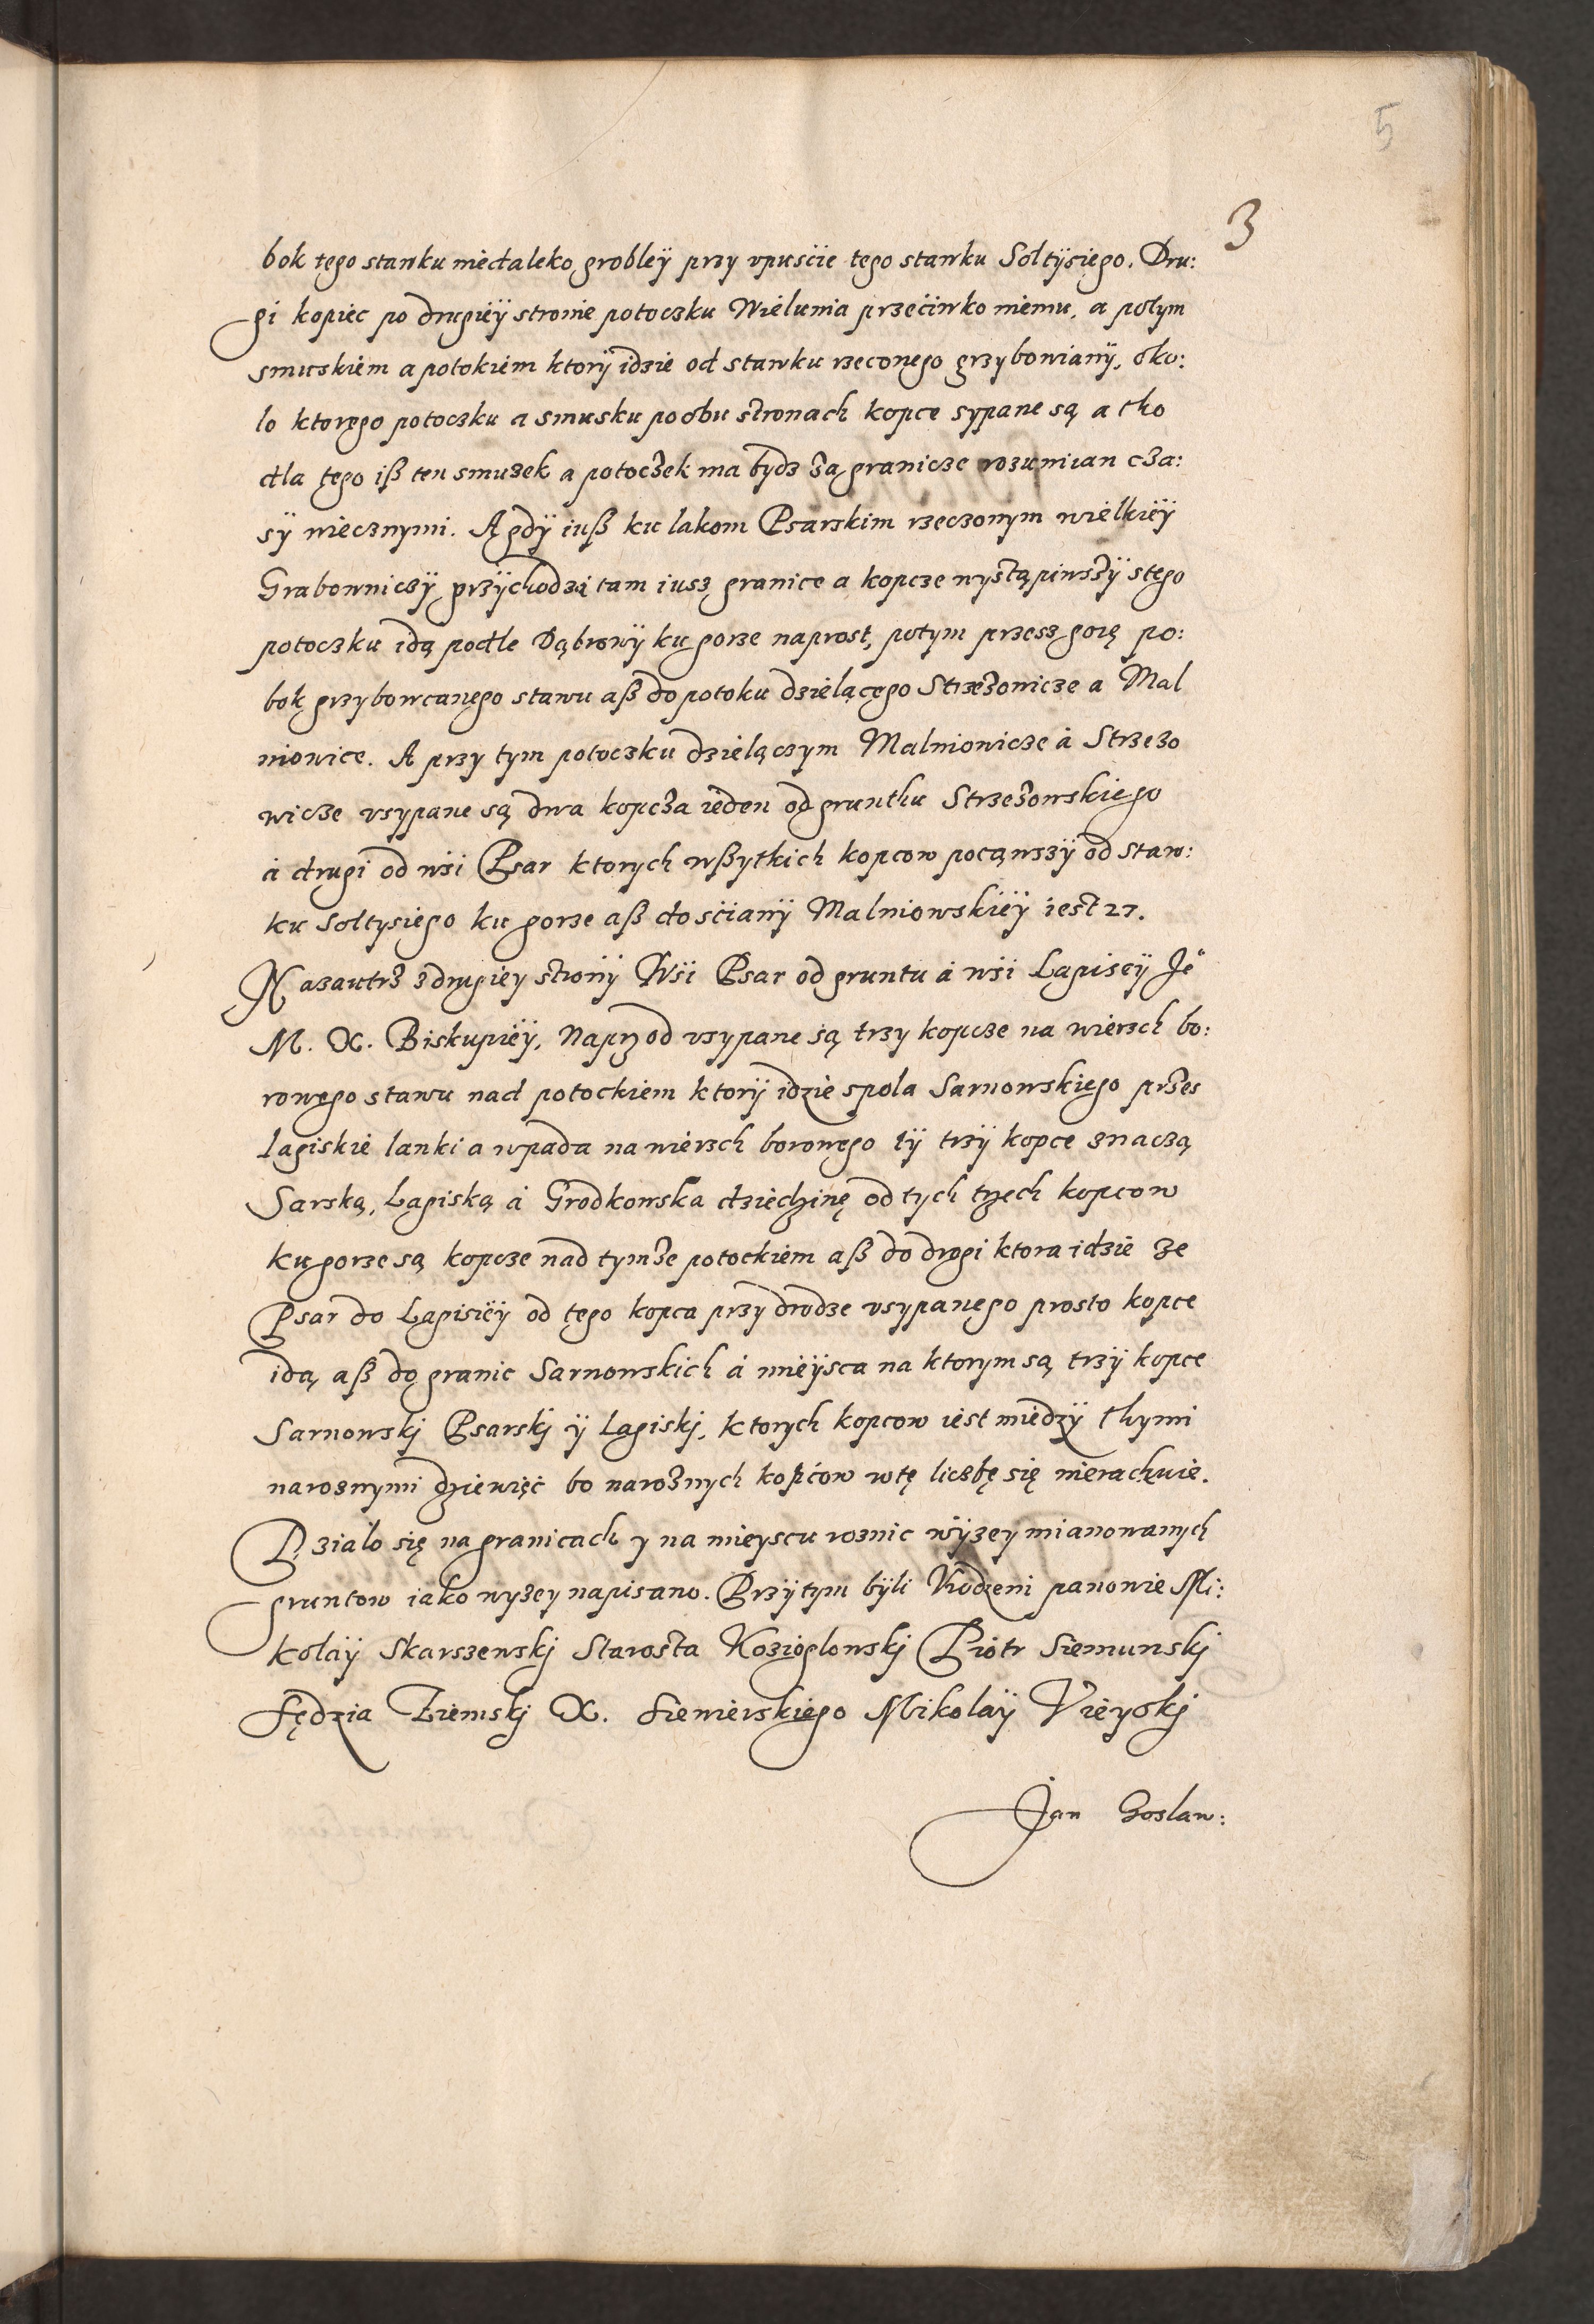 5
3
bok tego stawku niedaleko grobleÿ przy vpuscie tego stawku Soltÿsiego. Dru:
gi kopiec po drugieÿ stronie potoczku Wielunia przeciwko niemu, a potym
smuszkiem a potokiem ktorÿ idzie od stawku rzeconego grzybowianÿ, oko:
lo ktorego potoczku a smusku po obu stronach kopce sypane są a tho
dla tego iß ten smużek a potoczek ma bydz za granicze rozumian cza:
sÿ wiecznymi. A gdÿ iuß ku lakom Psarskim rzeczonym wielkieÿ
Grabowniczÿ przÿchodzą tam iusz granice a kopcze wystąpiwszÿ stego
potoczku idą podle Dąbrowÿ ku gorze naprost, potym przesz gorę po:
bok grzybowcanego stawu aß do potoku dzielącego Strzeżowicze a Mal
niowice. A przy tym potoczku dzielączym Malniowicze à Strzezo
wicze vsypane są dwa kopcża ieden od grunthu Strzeżowskiego
à drugi od wsi Psar ktorych wßytkich kopcow pocąwszÿ od staw:
ku Soltysiego ku gorze aß do scianÿ Malniowskieÿ iest 27.
Nazautrz z drugiey stronÿ Wsi Psar od gruntu à wsi Lagiseÿ Je°
M. X. Biskupieÿ, Naprzod vsypane są trzy kopcze na wierzch bo:
rowego stawu nad potockiem ktorÿ idzie spola Sarnowskiego przes
lagiskie lanki a wpada na wierzch borowego tÿ trzÿ kopce znaczą
Sarską, Lagiską à Grodkowska dziedzinę od tych trzech kopcow
ku gorze są kopcze nad tymże potockiem aß do drogi ktora idzie ze
Psar do Lagisieÿ od tego kopca przy drodze vsypanego prosto kopce
idą, aß do granic Sarnowskich à mieÿsca na ktorym są trzÿ kopce
Sarnowskj Psarskj ÿ Lagiskj, ktorych kopcow iest miedzÿ thymi
naroznymi dziewięć bo narożnych kopców w tę liczbę się nierachuie.
Dzialo się na granicach y na mieyscu roznic wÿzey mianowanych
gruntow iako wyzey napisano. Przÿtym bÿli Vrodzeni panowie Mi:
kolaÿ Skarszewskj Starosta Kozioglowskj Piotr Siemunskj
Sędzia Ziemskj X. Siewierskiego Mikolaÿ Vieyskj
Jan Goslaw: